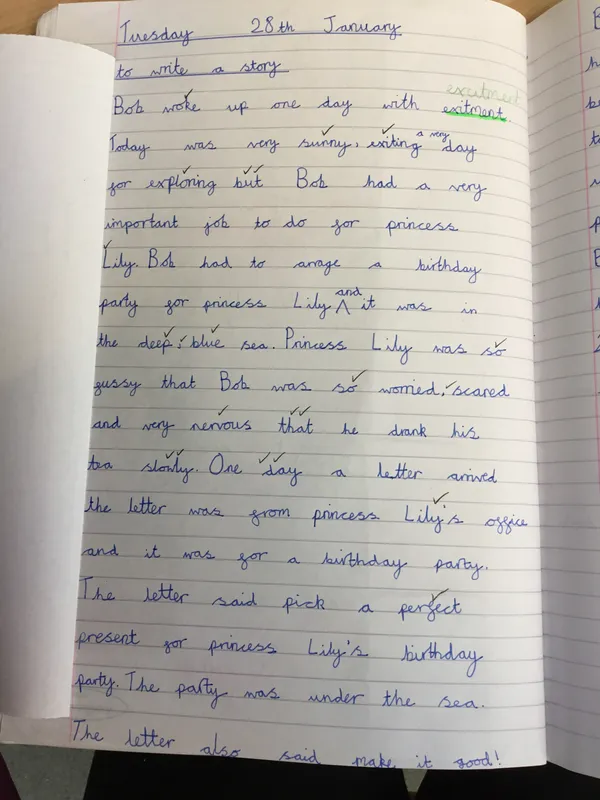 Tuesday 28th January
to write a story
excitment
Bob woke up one day with exitment.
a very
Today was very sunny, exiting day
for exploring but Bob had a very
important job to do for princess
Lily. Bob had to arrage a birthday
and
party for princess Lily ^ it was in
the deep, blue sea. Princess Lily was so
fussy that Bob was so worried, scared
and very nervous that he drank his
tea slowly. One day a letter arrived
the letter was from princess Lily's office
and it was for a birthday party.
The letter said pick a perfect
present for princess Lily's birthday
party. The party was under the sea.
The letter also said make it good!